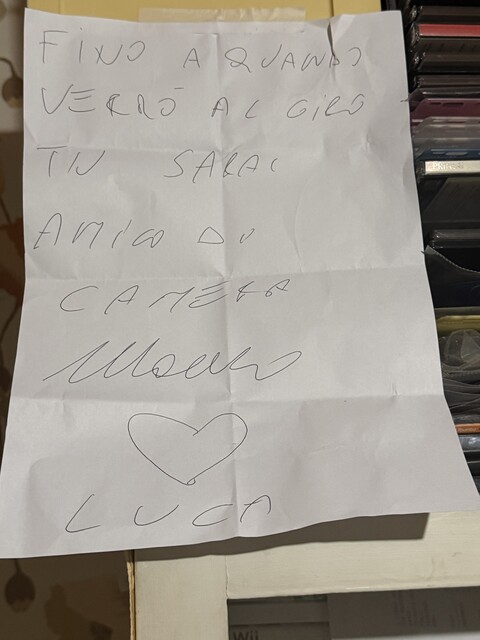 FINO A QUANDO
VERRÒ AL GIRO
TU SARAI
AMICO DI
CAMERA
LUCA
Wii